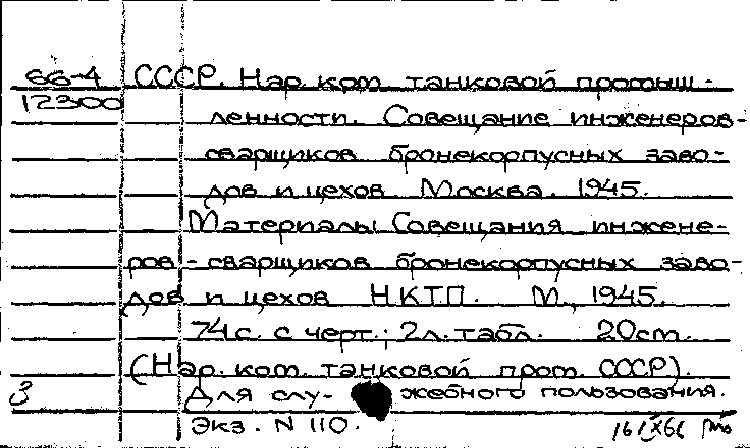 66-4 СССР. Нар. ком. танковой промыш-
12300
ленности. Совещание инженеров-
сварщиков бронекорпусных заво-
дов и цехов. Москва. 1945.
Материалы Совещания инжене-
ров-сварщиков бронекорпусных заво-
дов и цехов НКТП. М., 1945.
74с. с черт.; 2л. табл. 20см.
(Нар. ком. танковой пром. СССР).
3 Для слу- жебного пользования.
Экз. N 110.